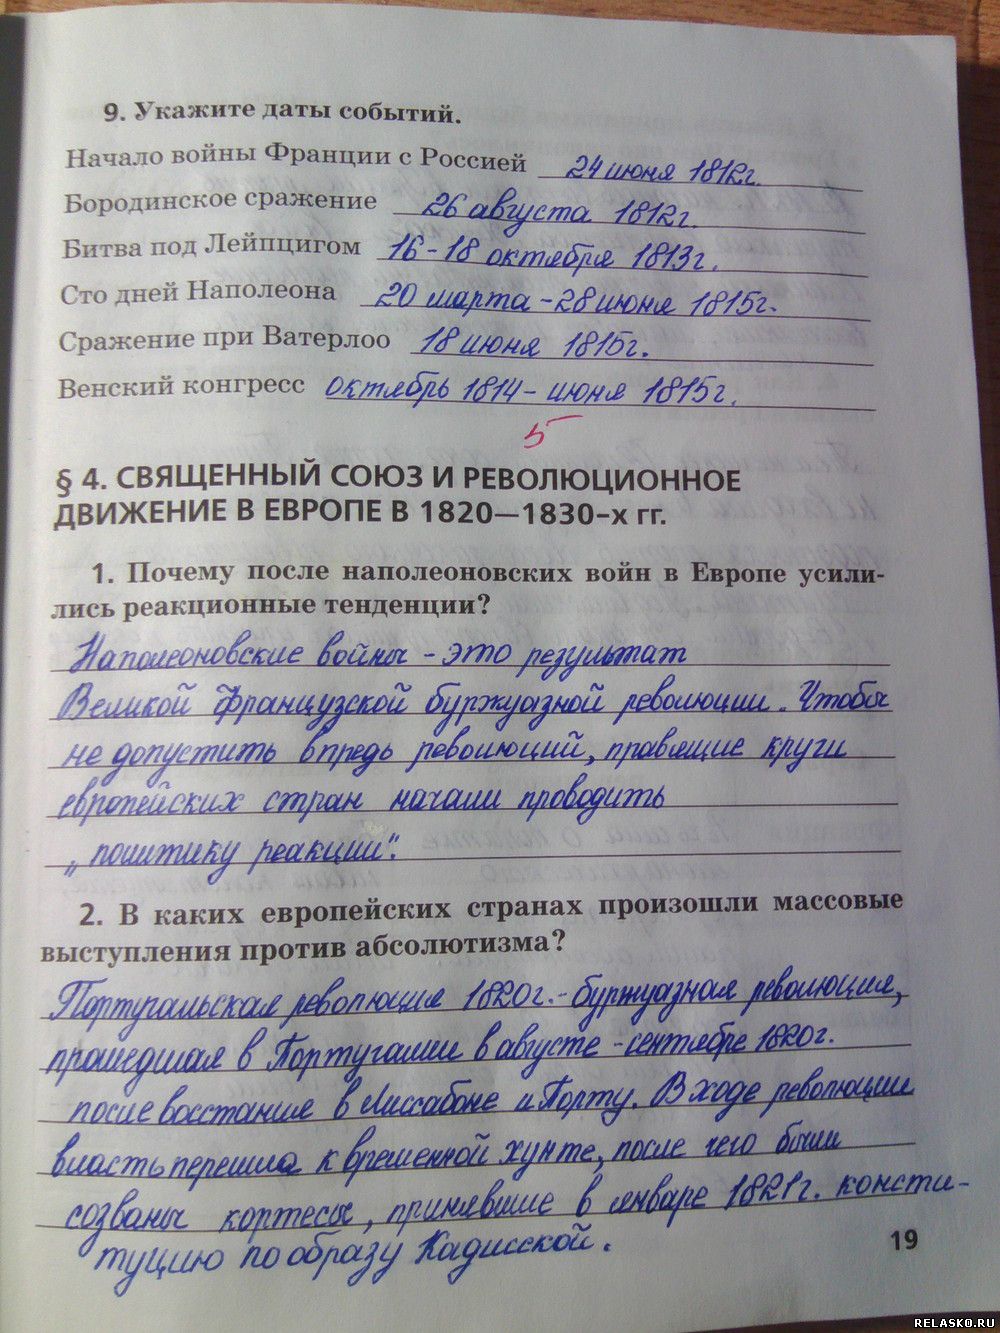 9. Укажите даты событий.
Начало войны Франции с Россией 24 июня 1812г.
Бородинское сражение 26 августа 1812г.
Битва под Лейпцигом 16-18 октября 1813г.
Сто дней Наполеона 20 марта - 28 июня 1815г.
Сражение при Ватерлоо 18 июня 1815г.
Венский конгресс октябрь 1814 - июня 1815г.
5
§ 4. СВЯЩЕННЫЙ СОЮЗ И РЕВОЛЮЦИОННОЕ
ДВИЖЕНИЕ В ЕВРОПЕ В 1820—1830-х гг.
1. Почему после наполеоновских войн в Европе усили-
лись реакционные тенденции?
Наполеоновские войны - это результат
Великой Французской буржуазной революции. Чтобы
не допустить впредь революций, правящие круги
европейских стран начали проводить
„политику реакции".
2. В каких европейских странах произошли массовые
выступления против абсолютизма?
Португальская революция 1820г. - буржуазная революция,
прошедшая в Португалии в августе - сентябре 1820г.
после восстания в Лиссабоне и Порту. В ходе революции
власть перешла к временной хунте, после чего были
созваны кортесы, принявшие в январе 1821г. консти-
туцию по образу Кадисской.
19
RELASKO.RU